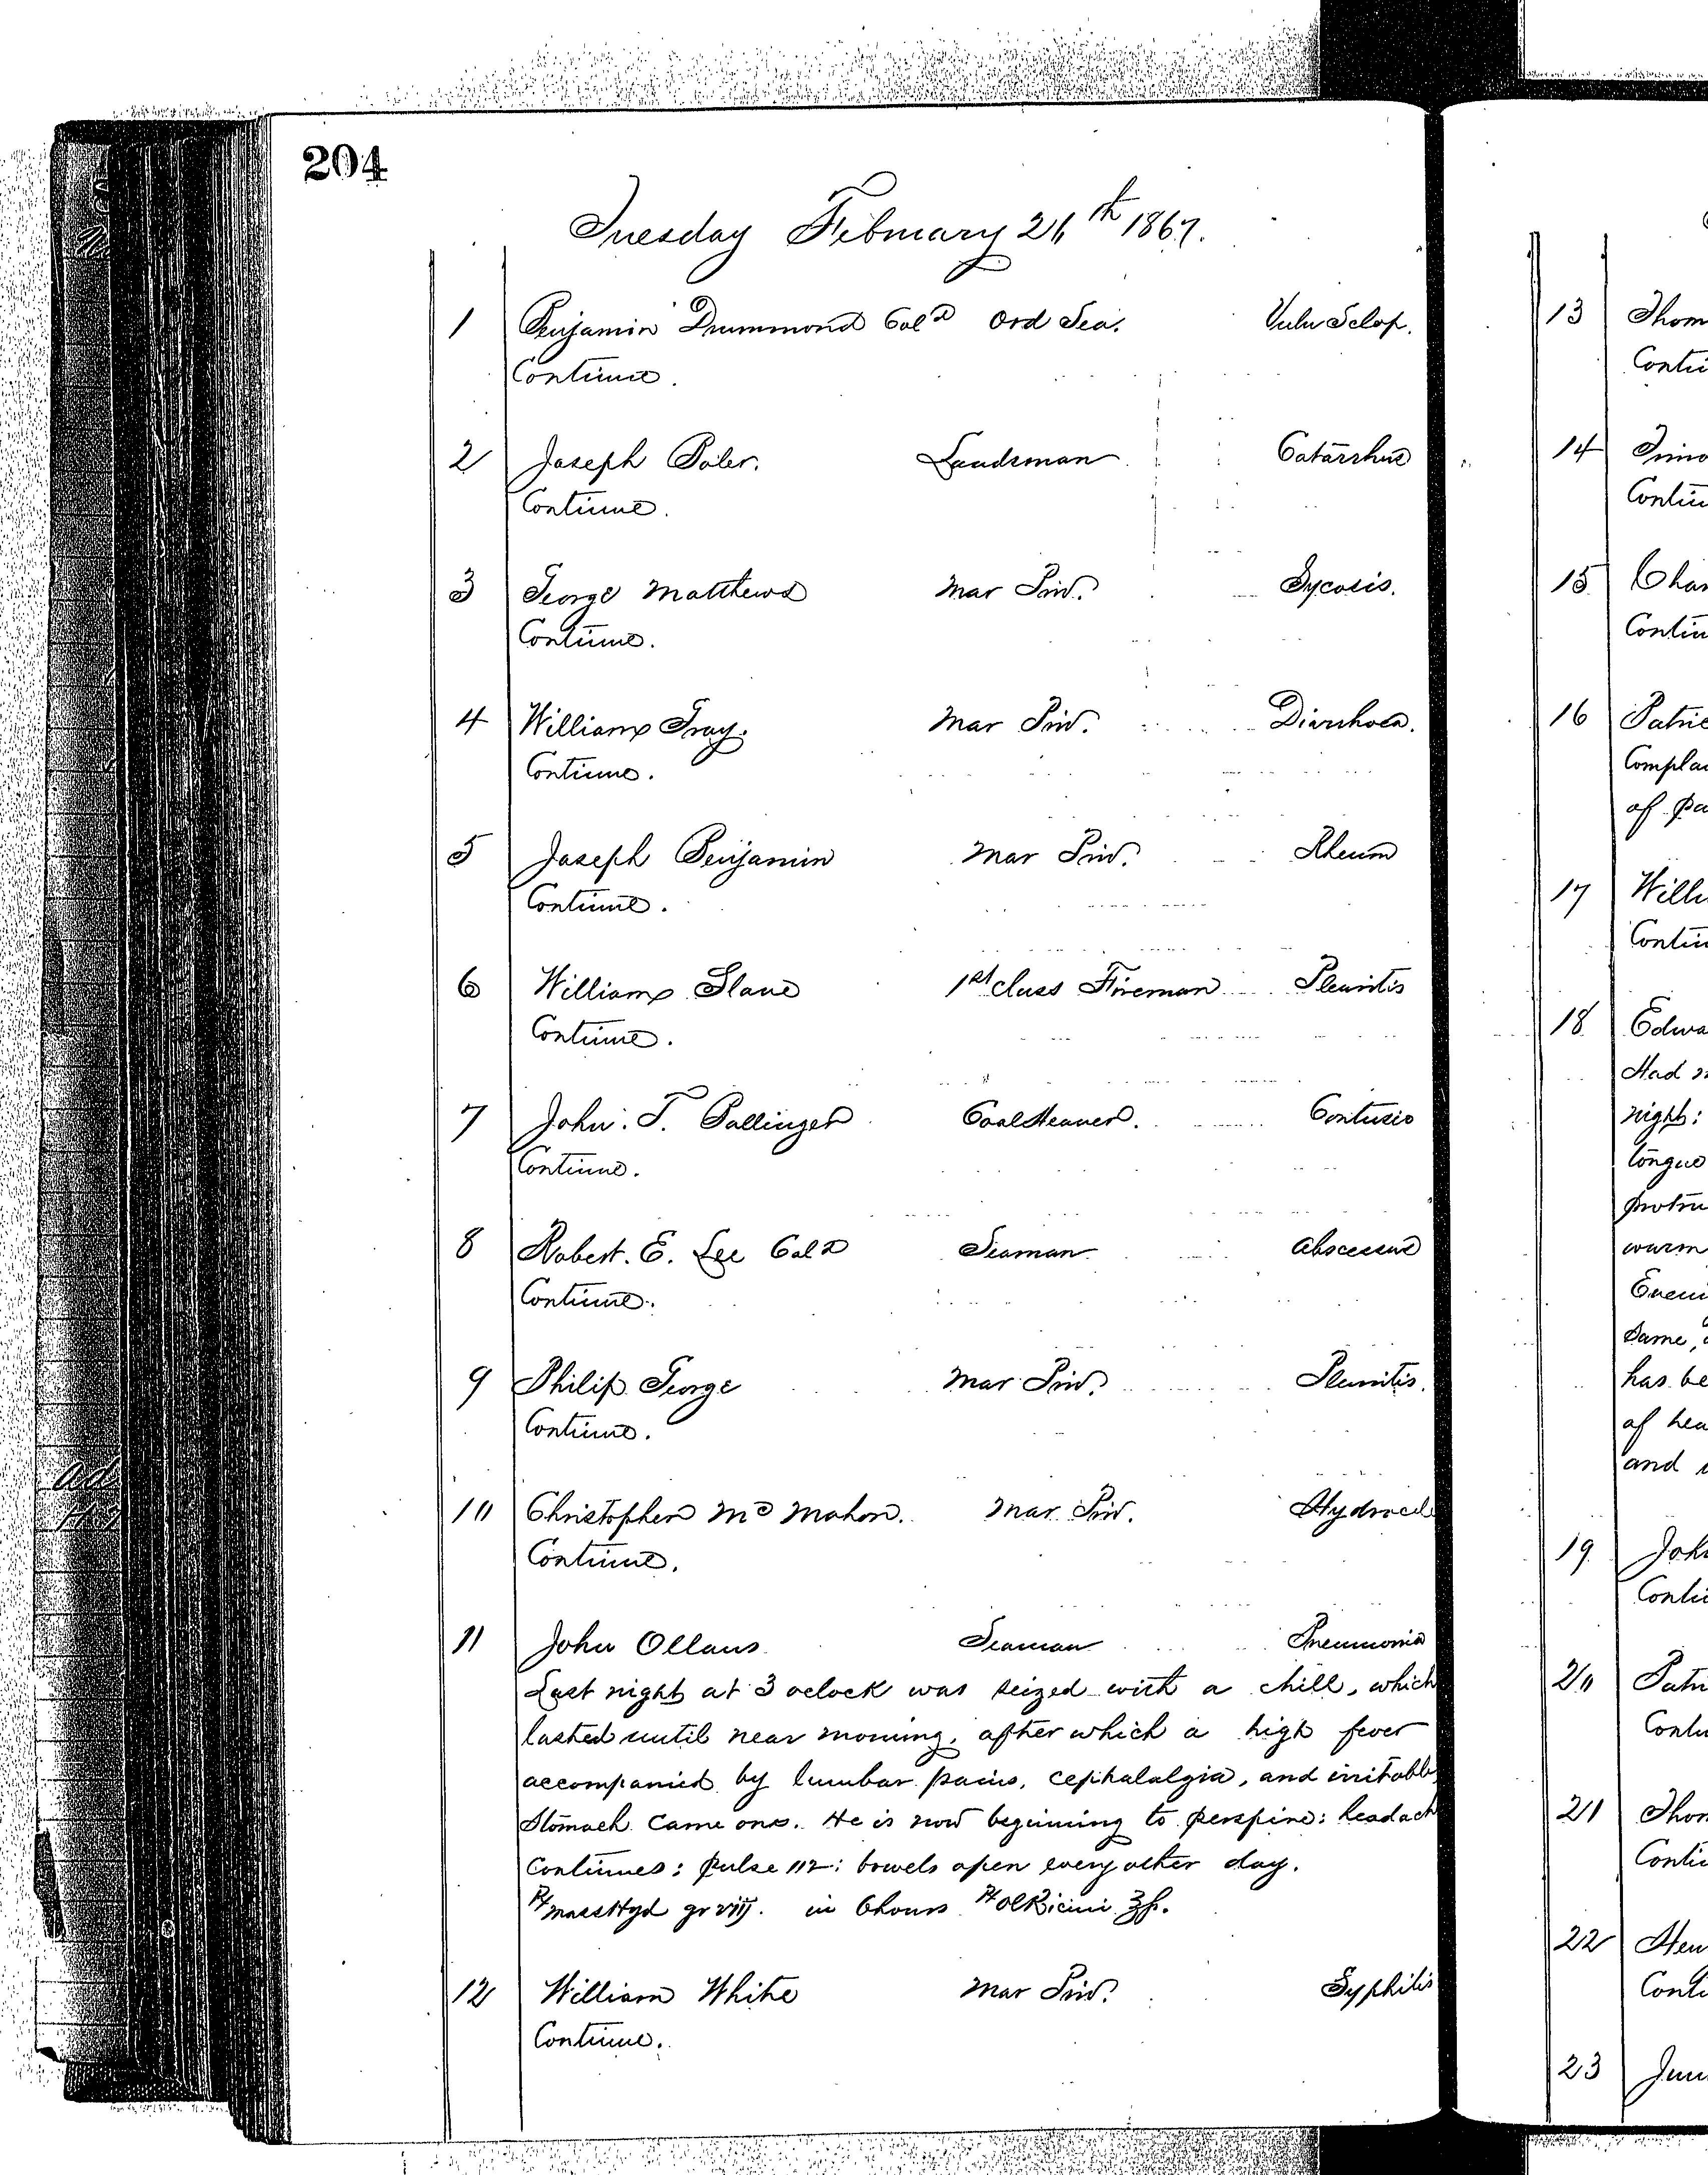 204
Tuesday February 26th 1867.
1 Benjamin Drummond Cold Ord Sea. Vuln Sclop.
Continue.
2 Joseph Landsman Catarrhus
Continue.
3 George Matthews Mar Priv. Sycosis.
Continue.
4 William Gray. Mar Priv. Diarrhoea.
Continue.
5 Joseph Benjamin Mar Priv. Rheum
Continue.
6 William Slane 1st class Fireman Pleuritis
Continue.
7 John. T. Ballinger Coal Heaver. Contusio
Continue.
8 Robert. E. Lee Cold Seaman Abscessus
Continue.
9 Philip George Mar Priv. Pleuritis.
Continue.
10 Christopher Mc Mahon. Mar. Priv. Hydrocel
Continue.
11 John Ollaus Seaman Pneumonia
Last night at 3 oclock was seized with a chill, which
lasted until near morning, after which a high fever
accompanied by lumbar pains, cephalalgia, and irritable
Stomach came one. He is now beginning to perspire: headach
Continues: pulse 112: bowels open every other day.
℞ mass Hyd gr viij. in 6 hours ℞ Ol Ricini ℥j.
12 William White Mar Priv. Syphilis
Continue.
13 Thom
Contin
14 Timo
Contin
15 Char
Contin
16 Patric
Complai
of pa
17 Willi
Contin
18 Edwa
Had n
night:
tongue
protru
warm
Eveni
Same,
has be
of hea
and
19 John
Conti
20 Patri
Contin
21 Thom
Conti
22 Hen
Conti
23